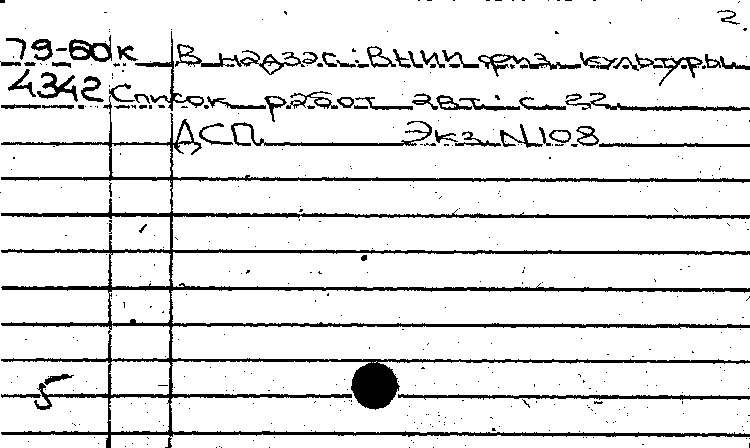 2.
79-60к В надзаг.: ВНИИ физ. культуры.
4342 Список работ авт.: с. 22.
ДСП. Экз. N108
5